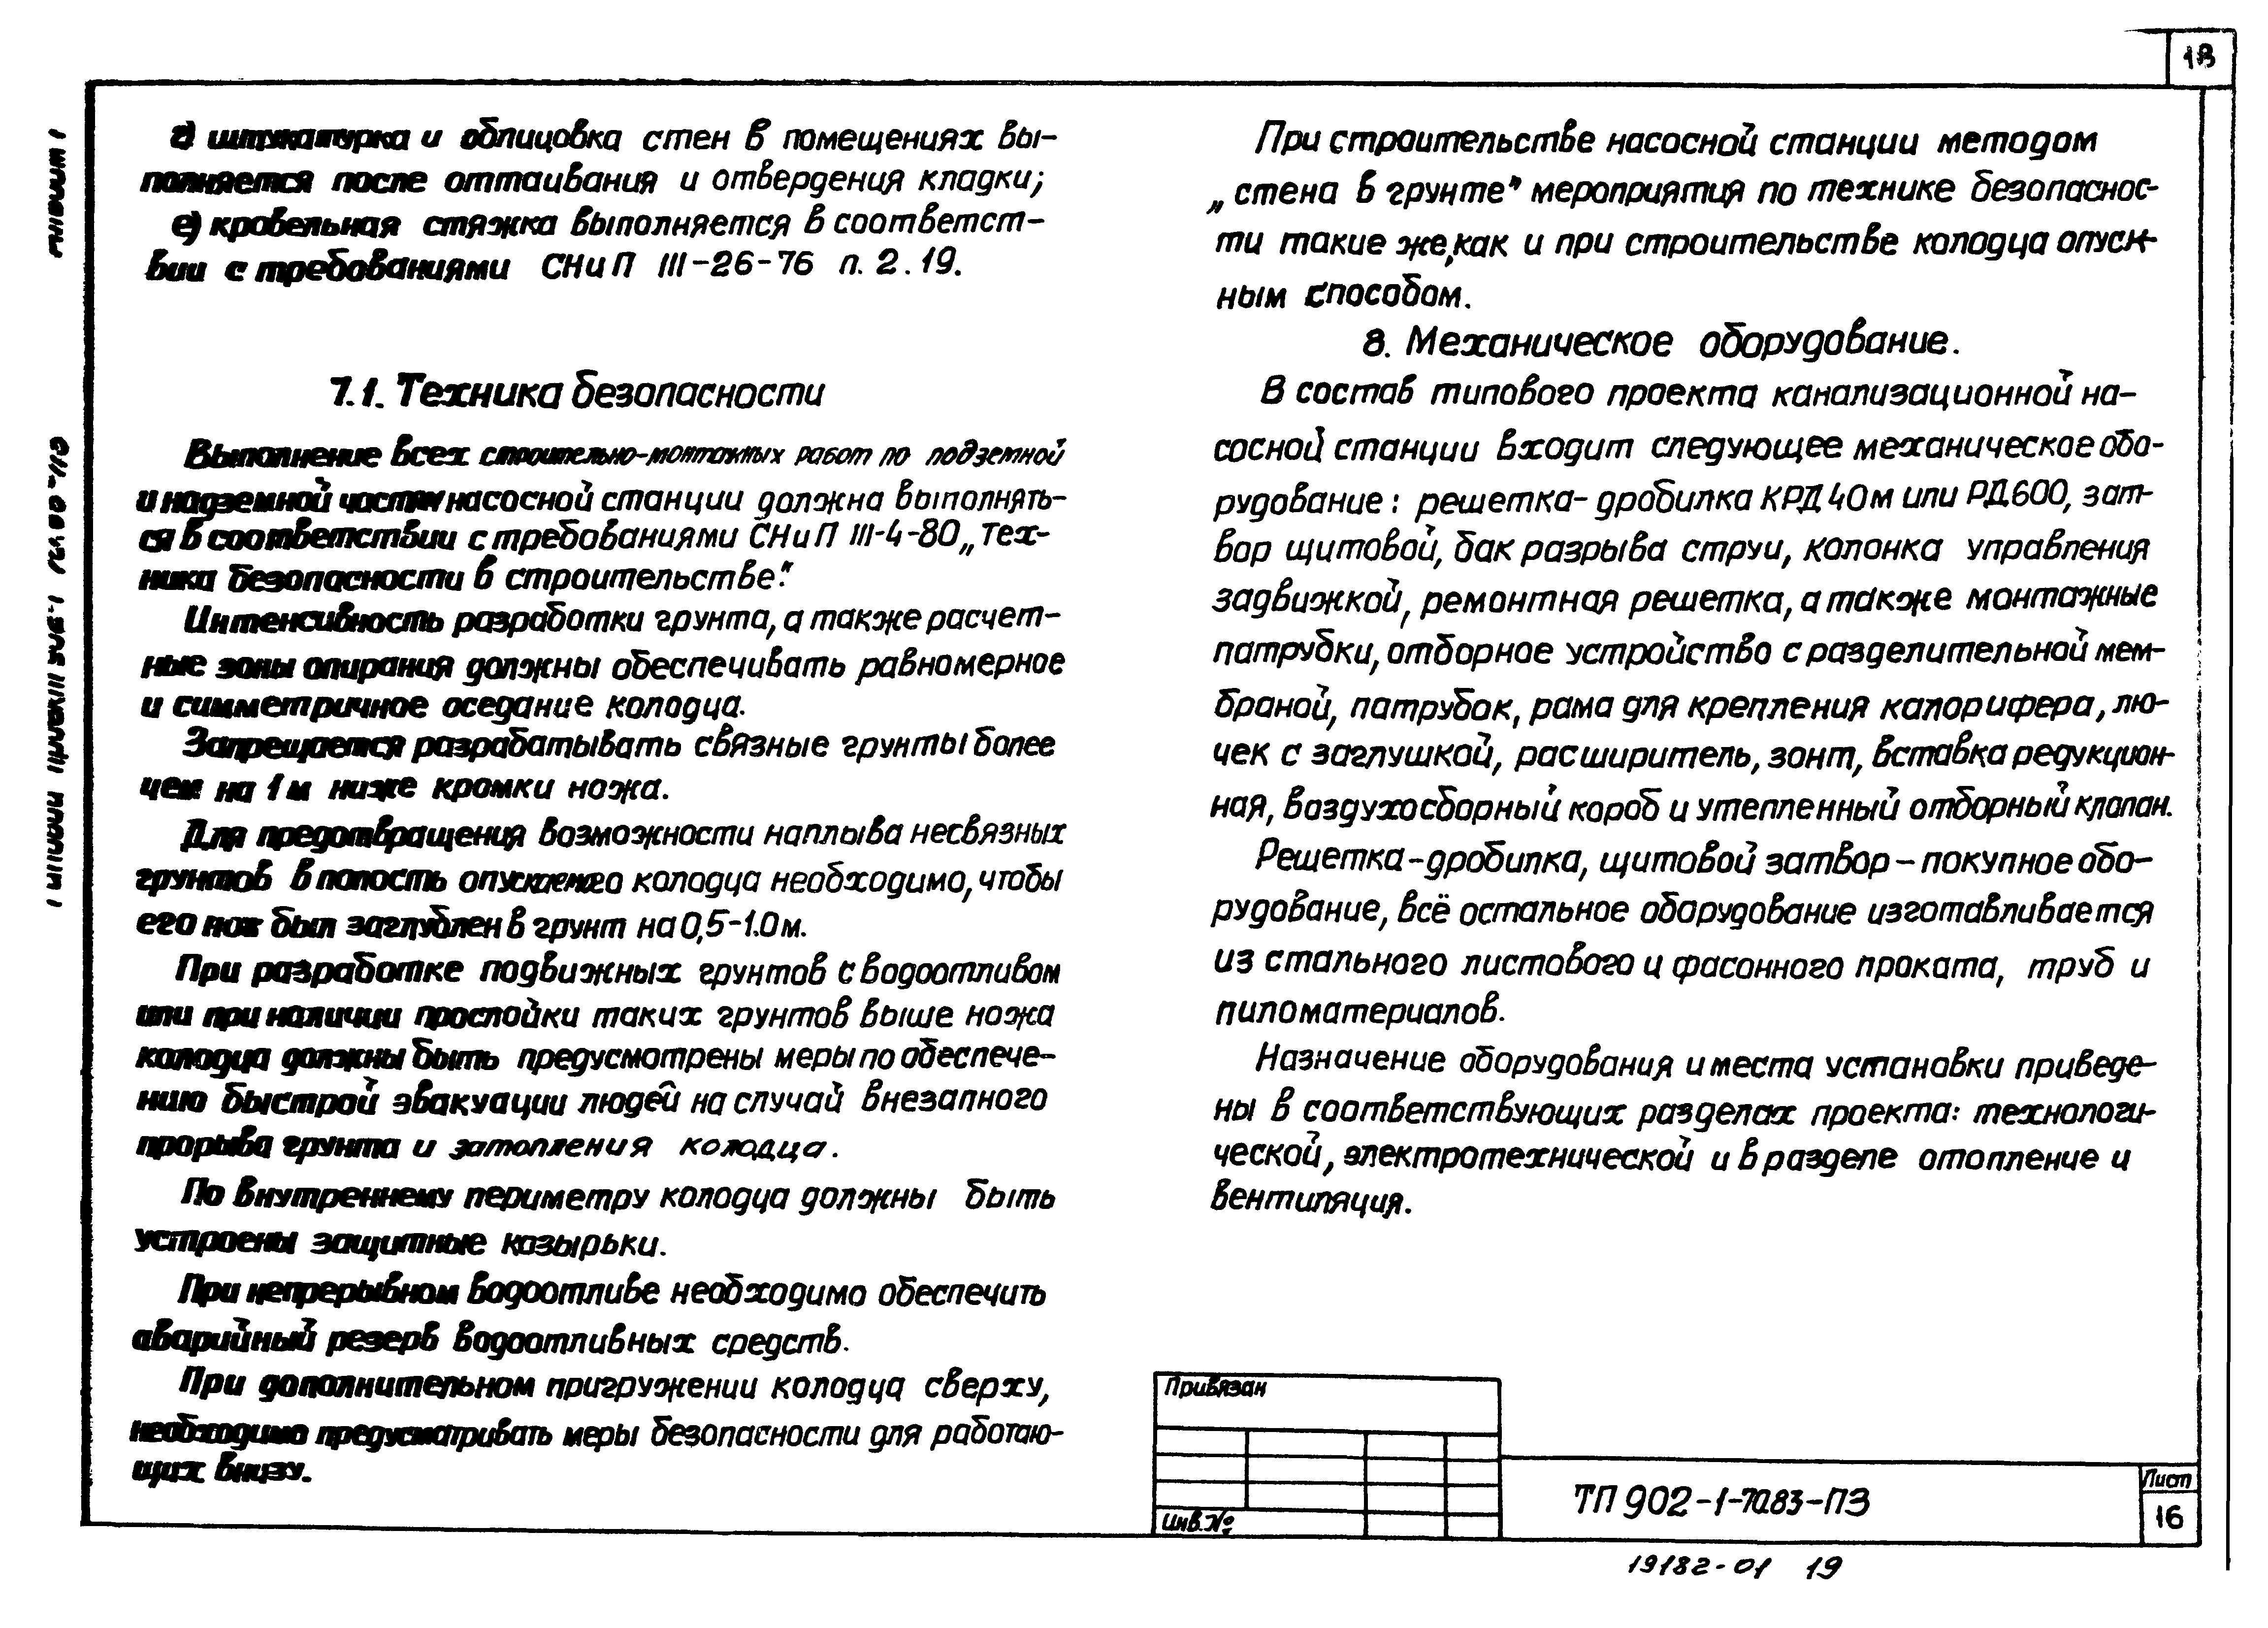 18
г) штукатурка и облицовка стен в помещениях вы-
полняется после оттаивания и отвердения кладки;
е) кровельная стяжка выполняется в соответст-
вии с требованиями СНиП III-26-76 п. 2.19.
7.1. Техника безопасности
Выполнение всех строительно-монтажных работ по подземной
и надземной частям насосной станции должна выполнять-
ся в соответствии с требованиями СНиП III-4-80 „Тех-
ника безопасности в строительстве".
Интенсивность разработки грунта, а также расчет-
ные зоны опирания должны обеспечивать равномерное
и симметричное оседание колодца.
Запрещается разрабатывать связные грунты более
чем на 1м ниже кромки ножа.
Для предотвращения возможности наплыва несвязных
грунтов в полость опускаемого колодца необходимо, чтобы
его нож был заглублен в грунт на 0,5-1.0м.
При разработке подвижных грунтов с водоотливом
или при наличии прослойки таких грунтов выше ножа
колодца должны быть предусмотрены меры по обеспече-
нию быстрой эвакуации людей на случай внезапного
прорыва грунта и затопления колодца.
По внутреннему периметру колодца должны быть
устроены защитные козырьки.
При непрерывном водоотливе необходимо обеспечить
аварийный резерв водоотливных средств.
При дополнительном пригружении колодца сверху,
необходимо предусматривать меры безопасности для работаю-
щих внизу.
При строительстве насосной станции методом
„стена в грунте" мероприятия по технике безопаснос-
ти такие же, как и при строительстве колодца опуск-
ным способом.
8. Механическое оборудование.
В состав типового проекта канализационной на-
сосной станции входит следующее механическое обо-
рудование: решетка-дробилка КРД40м или РД600, зат-
вор щитовой, бак разрыва струи, колонка управления
задвижкой, ремонтная решетка, а также монтажные
патрубки, отборное устройство с разделительной мем-
браной, патрубок, рама для крепления калорифера, лю-
чек с заглушкой, расширитель, зонт, вставка редукцион-
ная, воздухосборный короб и утепленный отборный клапан.
Решетка-дробилка, щитовой затвор - покупное обо-
рудование, всё остальное оборудование изготавливается
из стального листового и фасонного проката, труб и
пиломатериалов.
Назначение оборудования и места установки приведе-
ны в соответствующих разделах проекта: технологи-
ческой, электротехнической и в разделе отопление и
вентиляция.
Привязан
Инв.№
ТП 902-1-70.83-ПЗ
Лист
16
19182-01 19